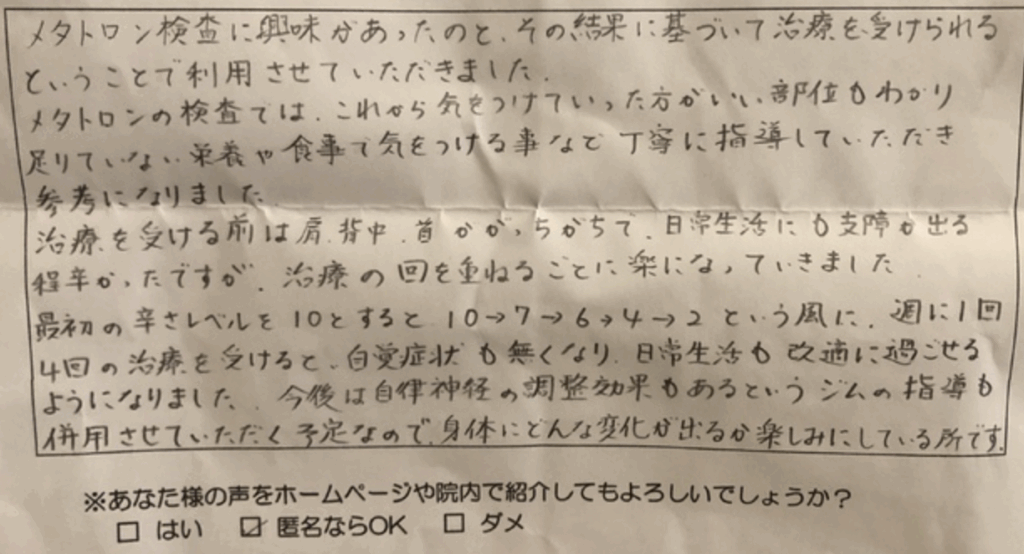 メタトロン検査に興味があったのと、その結果に基づいて治療を受けられる
ということで利用させていただきました.
メタトロンの検査では、これから気をつけていった方がいい、部位もわかり
足りていない栄養や食事で気をつける事など丁寧に指導していただき
参考になりました
治療を受ける前は肩.背中.首がガッちがちで、日常生活にも支障が出る
程辛かったですが、治療の回を重ねるごとに楽になっていきました.
最初の辛さレベルを10とすると10→7→6→4→2という風に、週に1回
4回の治療を受けると、自覚症状も無くなり、日常生活も改適に過ごせる
ようになりました、今後は自律神経の調整効果もあるというジムの指導も
併用させていただく予定なので、身体にどんな変化が出るか楽しみにしている所です.
※あなた様の声をホームページや院内で紹介してもよろしいでしょうか？
□ はい ☑ 匿名ならOK □ ダメ